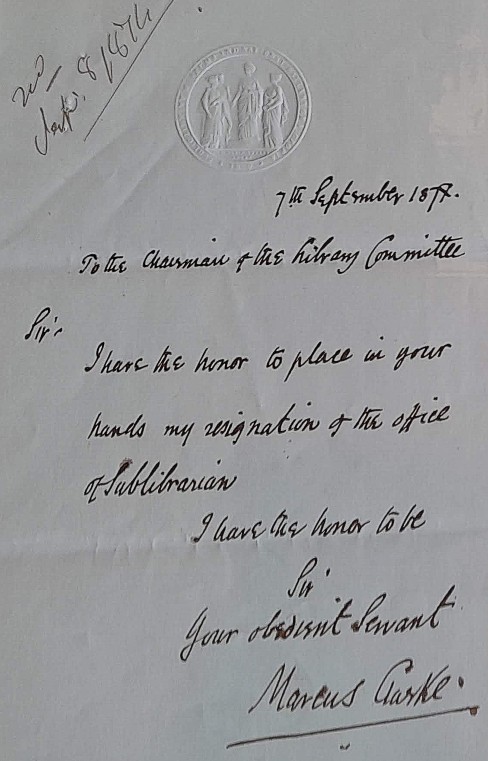 7th September
To the Chairman of the Library Committee
Sir
I have the honor to place in your
hands my resignation of the office
of Sublibrarian
I have the honor to be
Sir
Your obedient Servant
Marcus Clarke.